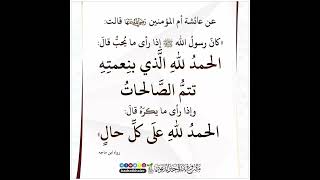 عن عائشة أم المؤمنين رضي الله عنها قالت:
«كانَ رسولُ الله ﷺ إذا رأى ما يُحبُّ قالَ:
الحمدُ للهِ الَّذي بنِعمتِهِ
تتمُّ الصَّالحاتُ
وإذا رأى ما يكرَهُ قالَ:
الحمدُ للهِ علَى كلِّ حالٍ»
رواه ابن ماجه